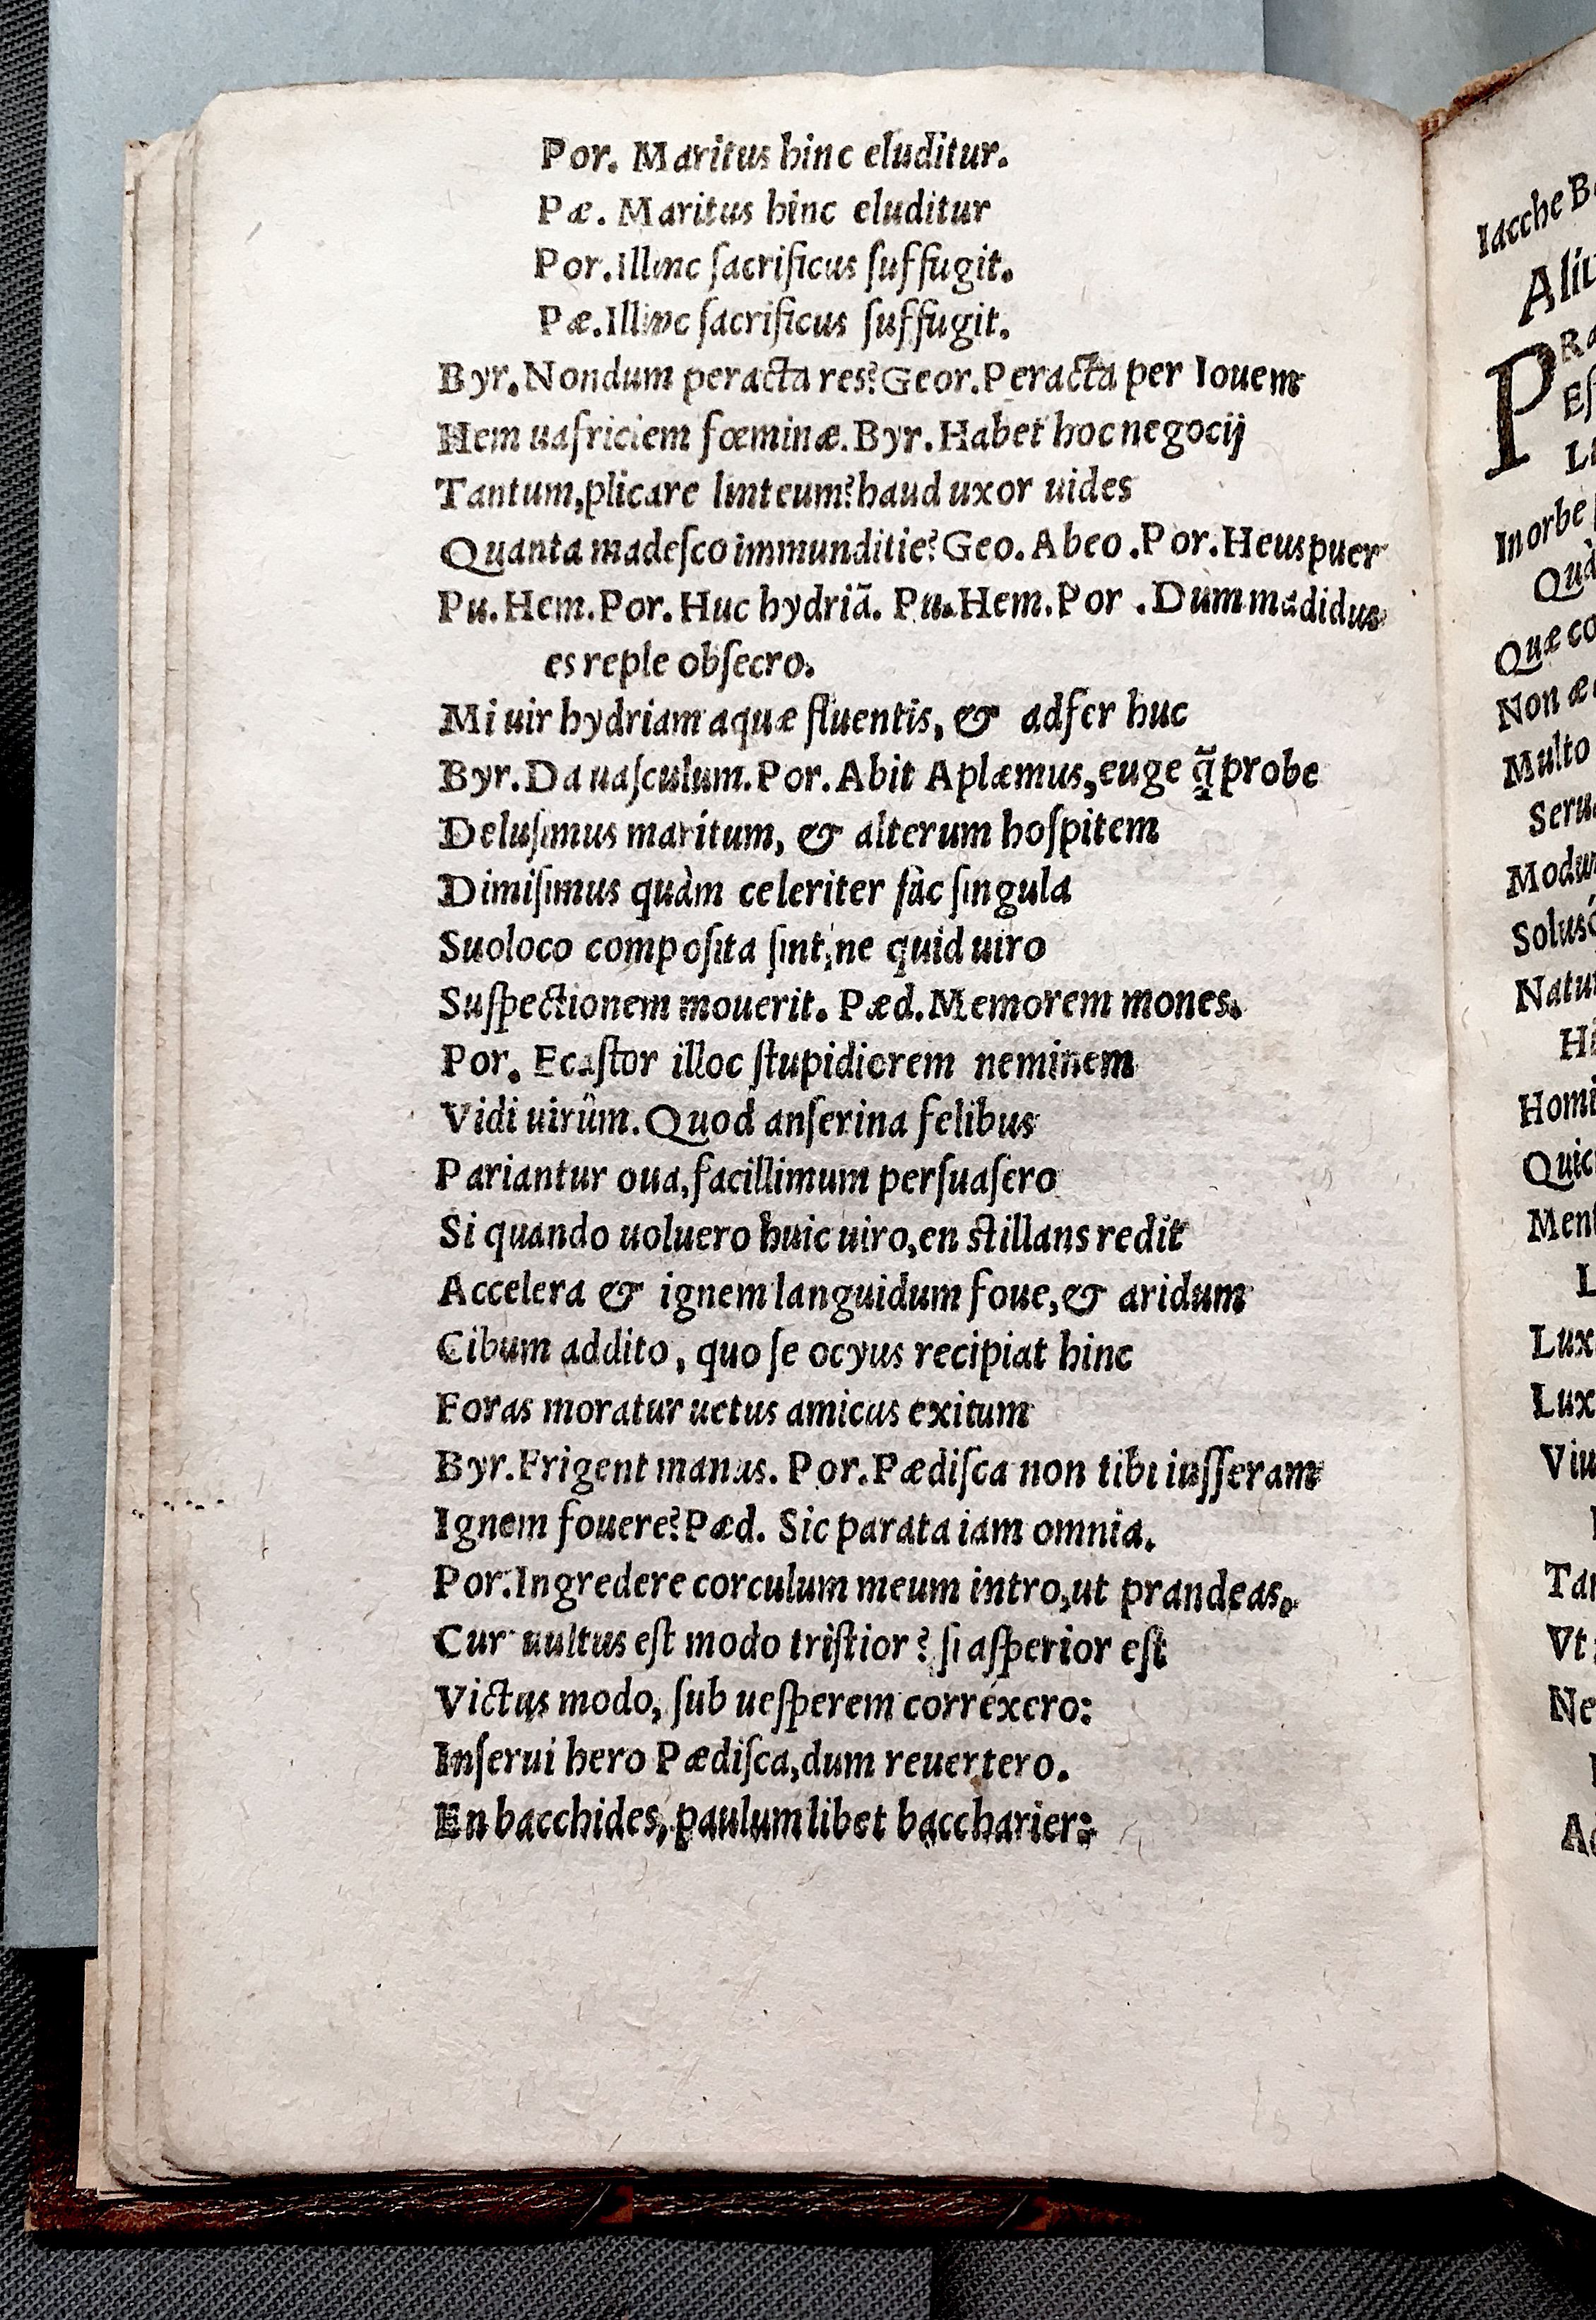 Por. Maritus hinc eluditur.
Pæ. Maritus hinc eluditur
Por. Illinc ſacrificus ſuffugit.
Pæ. Illinc ſacrificus ſuffugit.
Byr. Nondum peracta res? Geor. Peracta per Iouem
Hem uafriciem fœminæ. Byr. Habet hoc negocij
Tantum, plicare linteum? haud uxor uides
Quanta madeſco immunditie? Geo. Abeo. Por. Heus puer
Pu. Hem. Por. Huc hydriã. Pu. Hem. Por. Dum madidus
es reple obſecro.
Mi uir hydriam aquæ fluentis, & adfer huc
Byr. Da uaſculum. Por. Abit Aplæmus, euge q̃ probe
Deluſimus maritum, & alterum hoſpitem
Dimiſimus quàm celeriter fàc ſingula
Suo loco compoſita ſint, ne quid uiro
Suſpectionem mouerit. Pæd. Memorem mones.
Por. Ecaſtor illoc ſtupidiorem neminem
Vidi uirûm. Quod anſerina felibus
Pariantur oua, facillimum perſuaſero
Si quando uoluero huic uiro, en ſtillans redit
Accelera & ignem languidum foue, & aridum
Cibum addito, quo ſe ocyus recipiat hinc
Foras moratur uetus amicus exitum
Byr. Frigent manus. Por. Pædiſca non tibi iuſſeram
Ignem fouere? Pæd. Sic parata iam omnia.
Por. Ingredere corculum meum intro, ut prandeas.
Cur uultus eſt modo triſtior? ſi aſperior eſt
Victus modo, ſub ueſperem corréxero:
Inſerui hero Pædiſca, dum reuertero.
En bacchides, paulum libet baccharier:
Iacche
P
In orbe
Multo
Lux
Lux
Vt